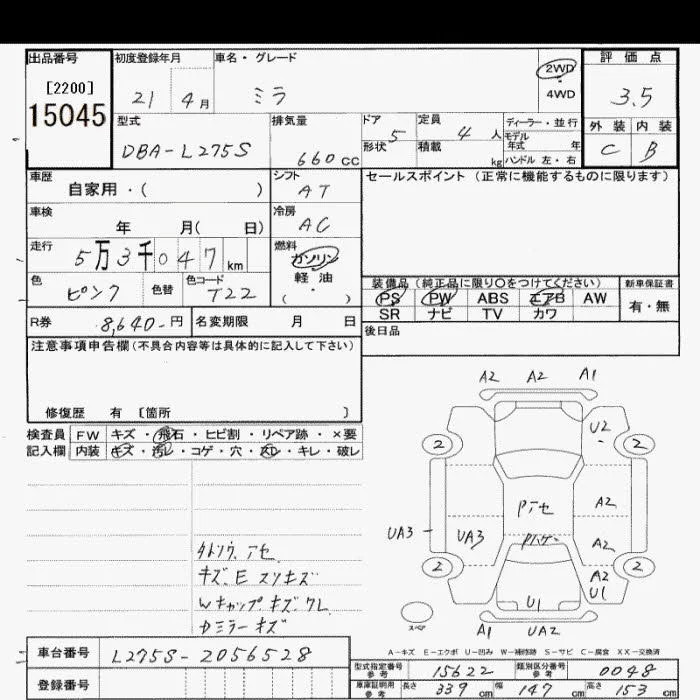 出品番号 初度登録年月 車名・グレード 2WD ・ 4WD 評価点
[2200] 21 4月 ミラ 3.5
15045 型式 排気量 ドア 5 形状 定員 4人 積載 kg ディーラー・並行 モデル年式 年 ハンドル 左・右 外装 内装
DBA-L275S 660cc C B
車歴 シフト セールスポイント(正常に機能するものに限ります)
自家用・( ) AT
車検 冷房
年 月( 日) AC
走行 燃料
5万3千047km ガソリン
色 色替 色コード 軽油
ピンク T22 ( ・ )
装備品(純正品に限り〇をつけてください) 新車保証書
PS PW ABS エアB AW 有・無
SR ナビ TV カワ
R券 8,640-円 名変期限 月 日 後日品
注意事項申告欄(不具合内容等は具体的に記入して下さい)
修復歴 有 〔箇所 〕
検査員 FW キズ・飛石・ヒビ割・リペア跡・×要
記入欄 内装 キズ・汚レ・コゲ・穴・スレ・キレ・破レ
A2 A2 A1
U2
2 2
Pアセ A2
UA3 UA3 A2
2 2
A2
U1 U1
スペア
A1 UA2
キズ.E スリキズ
Wキャップキズ.ワレ
Dミラーキズ
A-キズ E-エクボ U-凹み W-補修跡 S-サビ C-腐食 XX-交換済
車台番号 L275S-2056528
登録番号
型式指定番号参考 15622 類別区分番号参考 0048
車庫証明用参考 長さ 339cm 幅 147cm 高さ 153cm